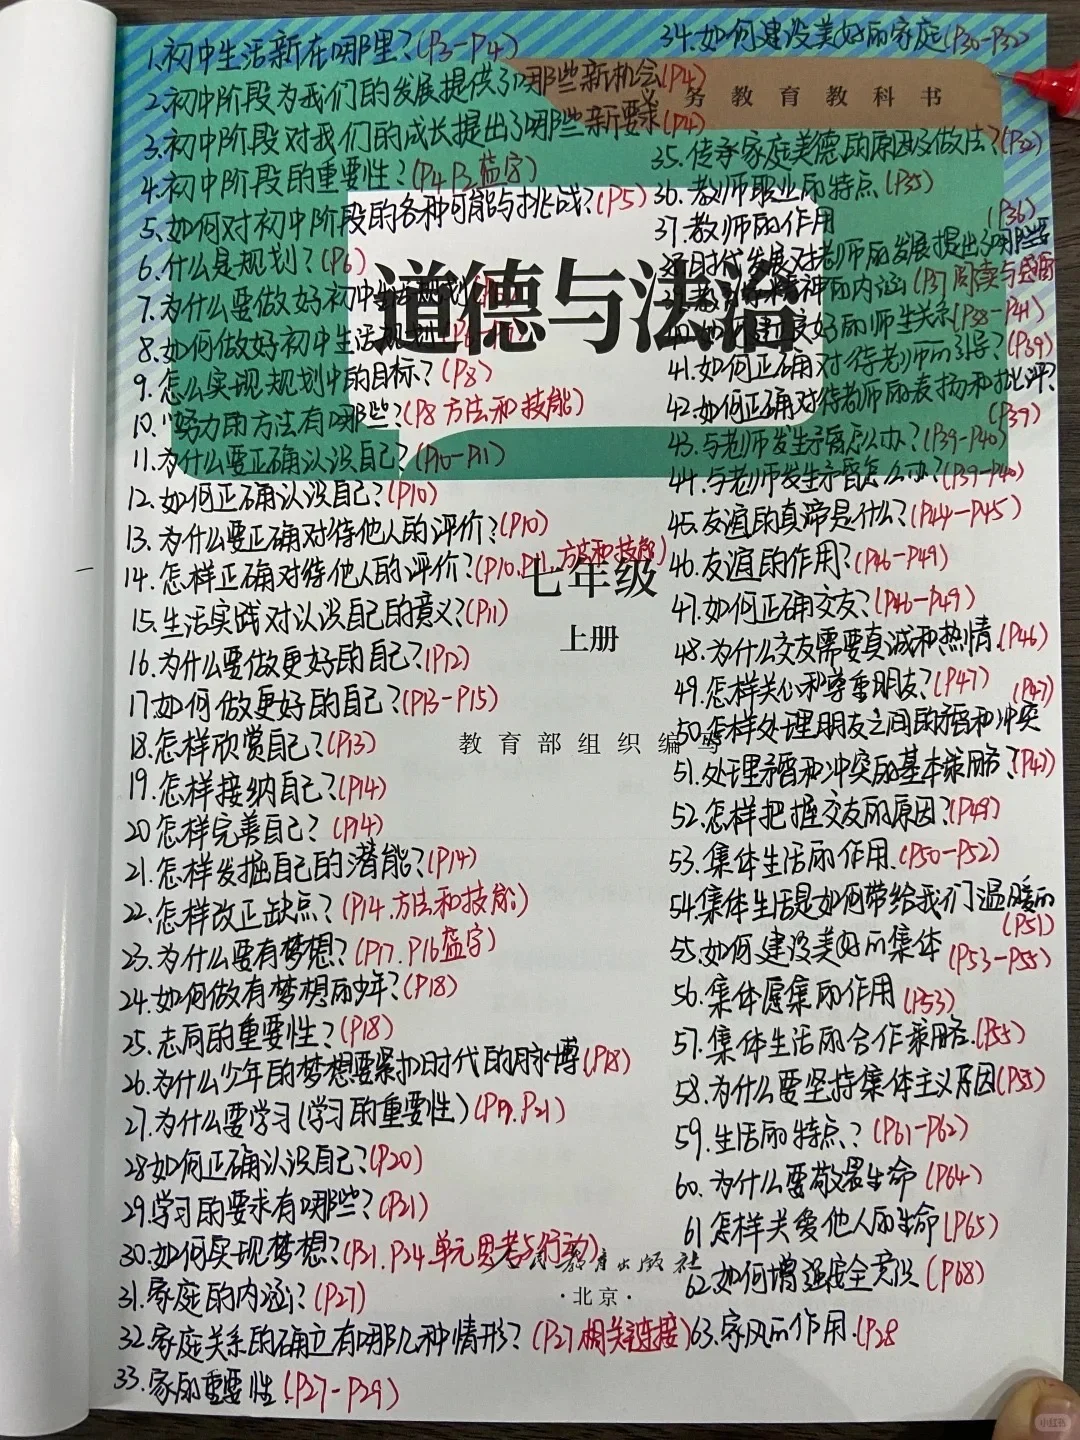 1.初中生活新在哪里?(P3-P4)
2.初中阶段为我们的发展提供了哪些新机会(P4)
3.初中阶段对我们的成长提出了哪些新要求(P4)
4.初中阶段的重要性?(P4 P3蓝字)
5.如何对初中阶段的各种可能与挑战?(P5)
6.什么是规划?(P6)
7.为什么要做好初中生活规划
8.如何做好初中生活规划
9.怎么实现规划中的目标?(P8)
10."努力的方法有哪些?(P8方法和技能)
11.为什么要正确认识自己?(P10-P11)
12.如何正确认识自己?(P10)
13.为什么要正确对待他人的评价?(P10)
14.怎样正确对待他人的评价?(P10.P11.方法和技能)
15.生活实践对认识自己的意义?(P11)
16.为什么要做更好的自己?(P12)
17.如何做更好的自己?(P13-P15)
18.怎样欣赏自己?(P13)
19.怎样接纳自己?(P14)
20怎样完善自己?(P14)
21.怎样发掘自己的潜能?(P14)
22.怎样改正缺点?(P14.方法和技能)
23.为什么要有梦想?(P17.P16蓝字)
24.如何做有梦想的少年?(P18)
25.志向的重要性?(P18)
26.为什么少年的梦想要紧扣时代的脉搏(P18)
27.为什么要学习(学习的重要性)(P19.P21)
28如何正确认识自己?(P20)
29.学习的要求有哪些?(P21)
30.如何实现梦想?(P21.P24.单元思考与行动)
31.家庭的内涵?(P27)
32.家庭关系的确立有哪几种情形?(P27相关链接)
33.家的重要性(P27-P29)
34.如何建设美好的家庭(P30-P32)
义务教育教科书
35.传承家庭美德的原因及做法?(P32)
36.教师职业的特点(P35)
37.教师的作用
(P36)
时代发展对老师的发展提出了哪些要
精神的内涵(P37阅读与感悟
40.如何建立良好的师生关系(P38-P41)
41.如何正确对待老师的引导?(P39)
42.如何正确对待老师的表扬和批评?
(P39)
43.与老师发生矛盾怎么办?(P39-P40)
44.与老师发生矛盾怎么办?(P39-P40)
45.友谊的真谛是什么?(P44-P45)
46.友谊的作用?(P46-P49)
47.如何正确交友?(P46-P49)
48.为什么交友需要真诚和热情.(P46)
49.怎样关心和尊重朋友?(P47)
50.怎样处理朋友之间的矛盾和冲突(P47)
51.处理矛盾和冲突的基本策略?(P47)
52.怎样把握交友的原因?(P49)
53.集体生活的作用.(P50-P52)
54.集体生活是如何带给我们温暖的
(P51)
55.如何建设美好的集体(P53-P55)
56.集体愿景的作用(P53)
57.集体生活的合作策略.(P55)
58.为什么要坚持集体主义原因(P55)
59.生活的特点?(P61-P62)
60.为什么要敬畏生命(P64)
61怎样关爱他人的生命(P65)
62.如何增强安全意识(P68)
63.家风的作用.(P28
道德与法治
七年级
上册
教育部组织编写
人民教育出版社
·北京·
小红书